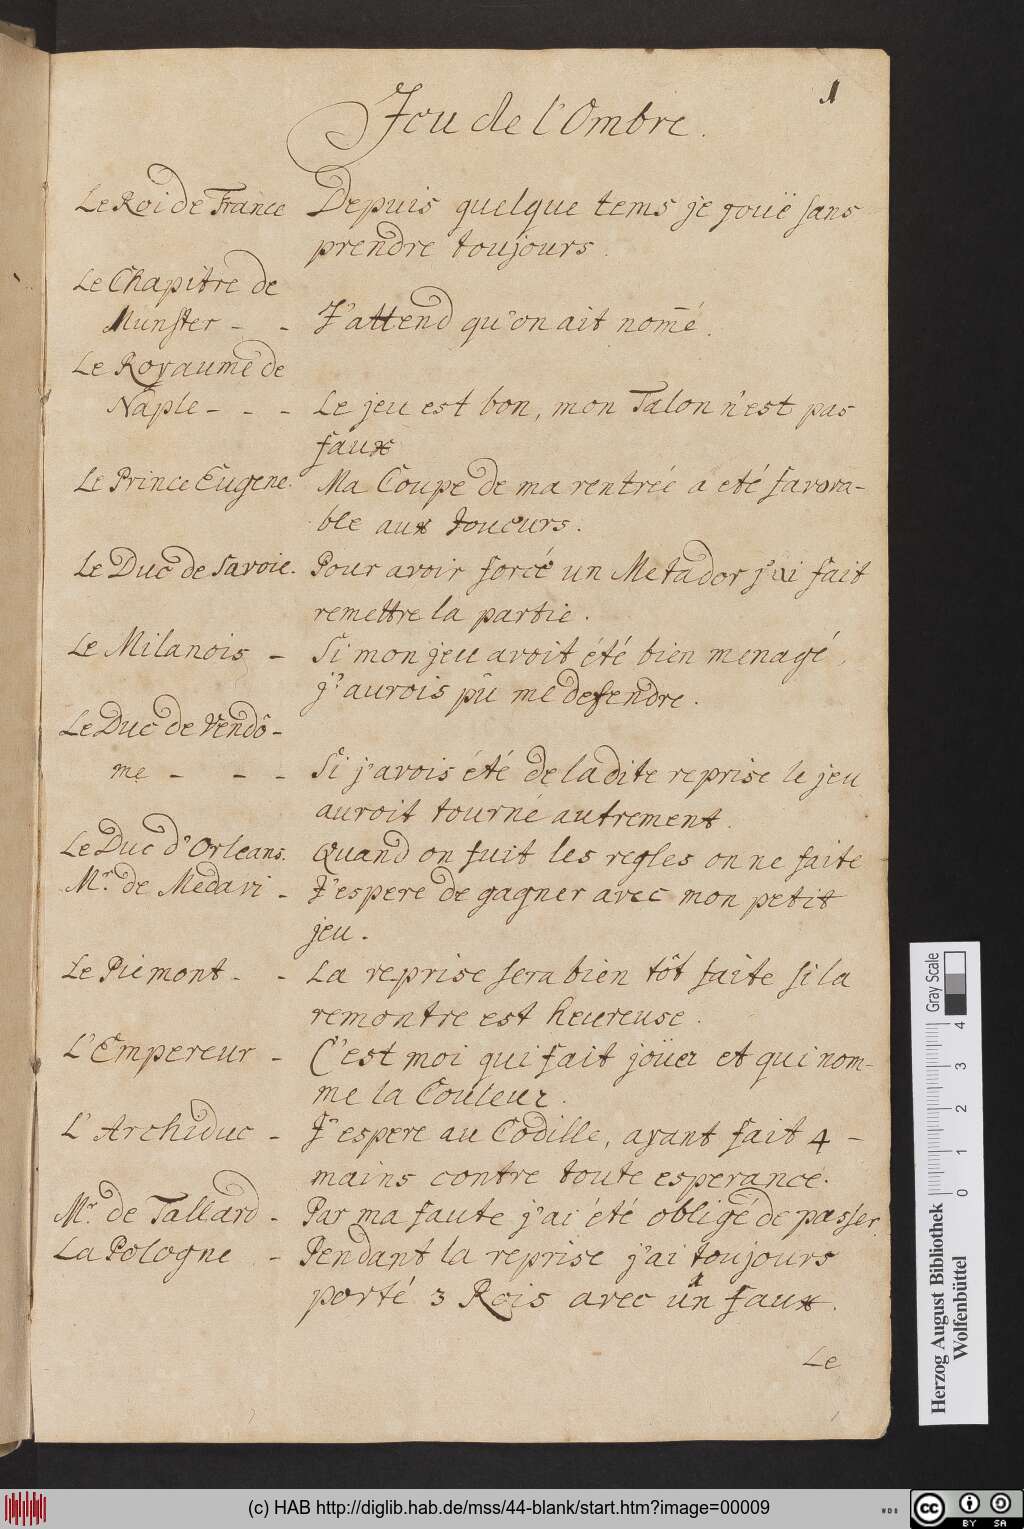 1
Jeu de l'Ombre.
Le Roi de France Depuis quelque tems je joue sans
prendre toujours.
Le Chapitre de
Munster - - J'attend qu'on ait nom̄é.
Le Royaume de
Naple - - - Le jeu est bon, mon Talon n'est pas
faux
Le Prince Eugene. Ma Coupe de ma rentrée a eté favora-
ble aux joueurs.
Le Duc de Savoie. Pour avoir forcé un Metador j'ai fait
remettre la partie.
Le Milanois - Si mon jeu avoit été bien menagé,
j'aurois pû me defendre.
Le Duc de Vendô-
me - - - Si j'avois été de la dite reprise le jeu
auroit tourné autrement.
Le Duc d'Orleans. Quand on suit les regles on ne faite
Mr. de Medavi - J'espere de gagner avec mon petit
jeu.
Le Piemont - - La reprise sera bien tôt faite si la
remontre est heureuse.
L'Empereur - C'est moi qui fait joüer et qui nom-
me la Couleur.
L'Archiduc - J'espere au Codille, ayant fait 4 -
mains contre toute esperance.
Mr. de Tallard - Par ma faute j'ai été obligé de passer.
La Pologne - Pendant la reprise j'ai toujours
porté 3 Rois avec un faux.
Le
Gray Scale
0 1 2 3 4
Herzog August Bibliothek
Wolfenbüttel
(c) HAB http://diglib.hab.de/mss/44-blank/start.htm?image=00009
WDB
cc BY SA